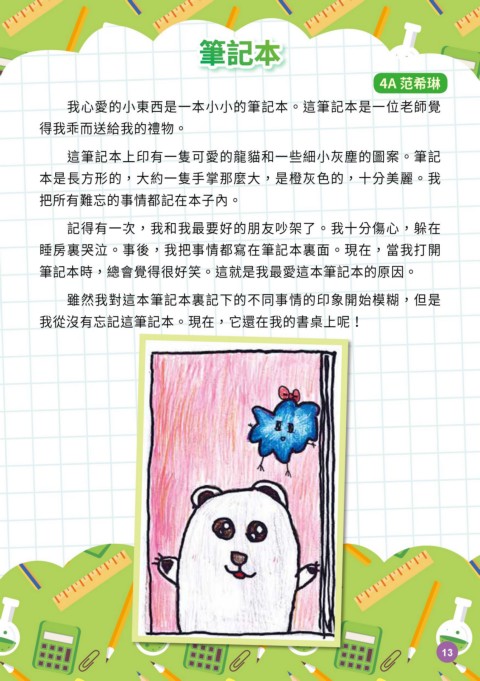 筆記本
4A 范希琳
我心愛的小東西是一本小小的筆記本。這筆記本是一位老師覺
得我乖而送給我的禮物。
這筆記本上印有一隻可愛的龍貓和一些細小灰塵的圖案。筆記
本是長方形的，大約一隻手掌那麼大，是橙灰色的，十分美麗。我
把所有難忘的事情都記在本子內。
記得有一次，我和我最要好的朋友吵架了。我十分傷心，躲在
睡房裏哭泣。事後，我把事情都寫在筆記本裏面。現在，當我打開
筆記本時，總會覺得很好笑。這就是我最愛這本筆記本的原因。
雖然我對這本筆記本裏記下的不同事情的印象開始模糊，但是
我從沒有忘記這筆記本。現在，它還在我的書桌上呢！
13